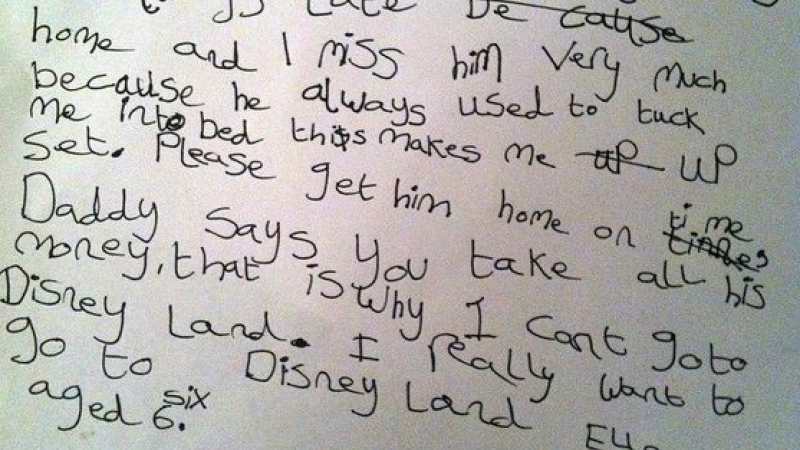 late be cause
home and I miss him very much
because he always used to tuck
me into bed this makes me up UP
set. Please get him home on time
Daddy says you take all his
money, that is why I cant go to
Disney Land. I really want to
go to Disney Land
aged 6. six